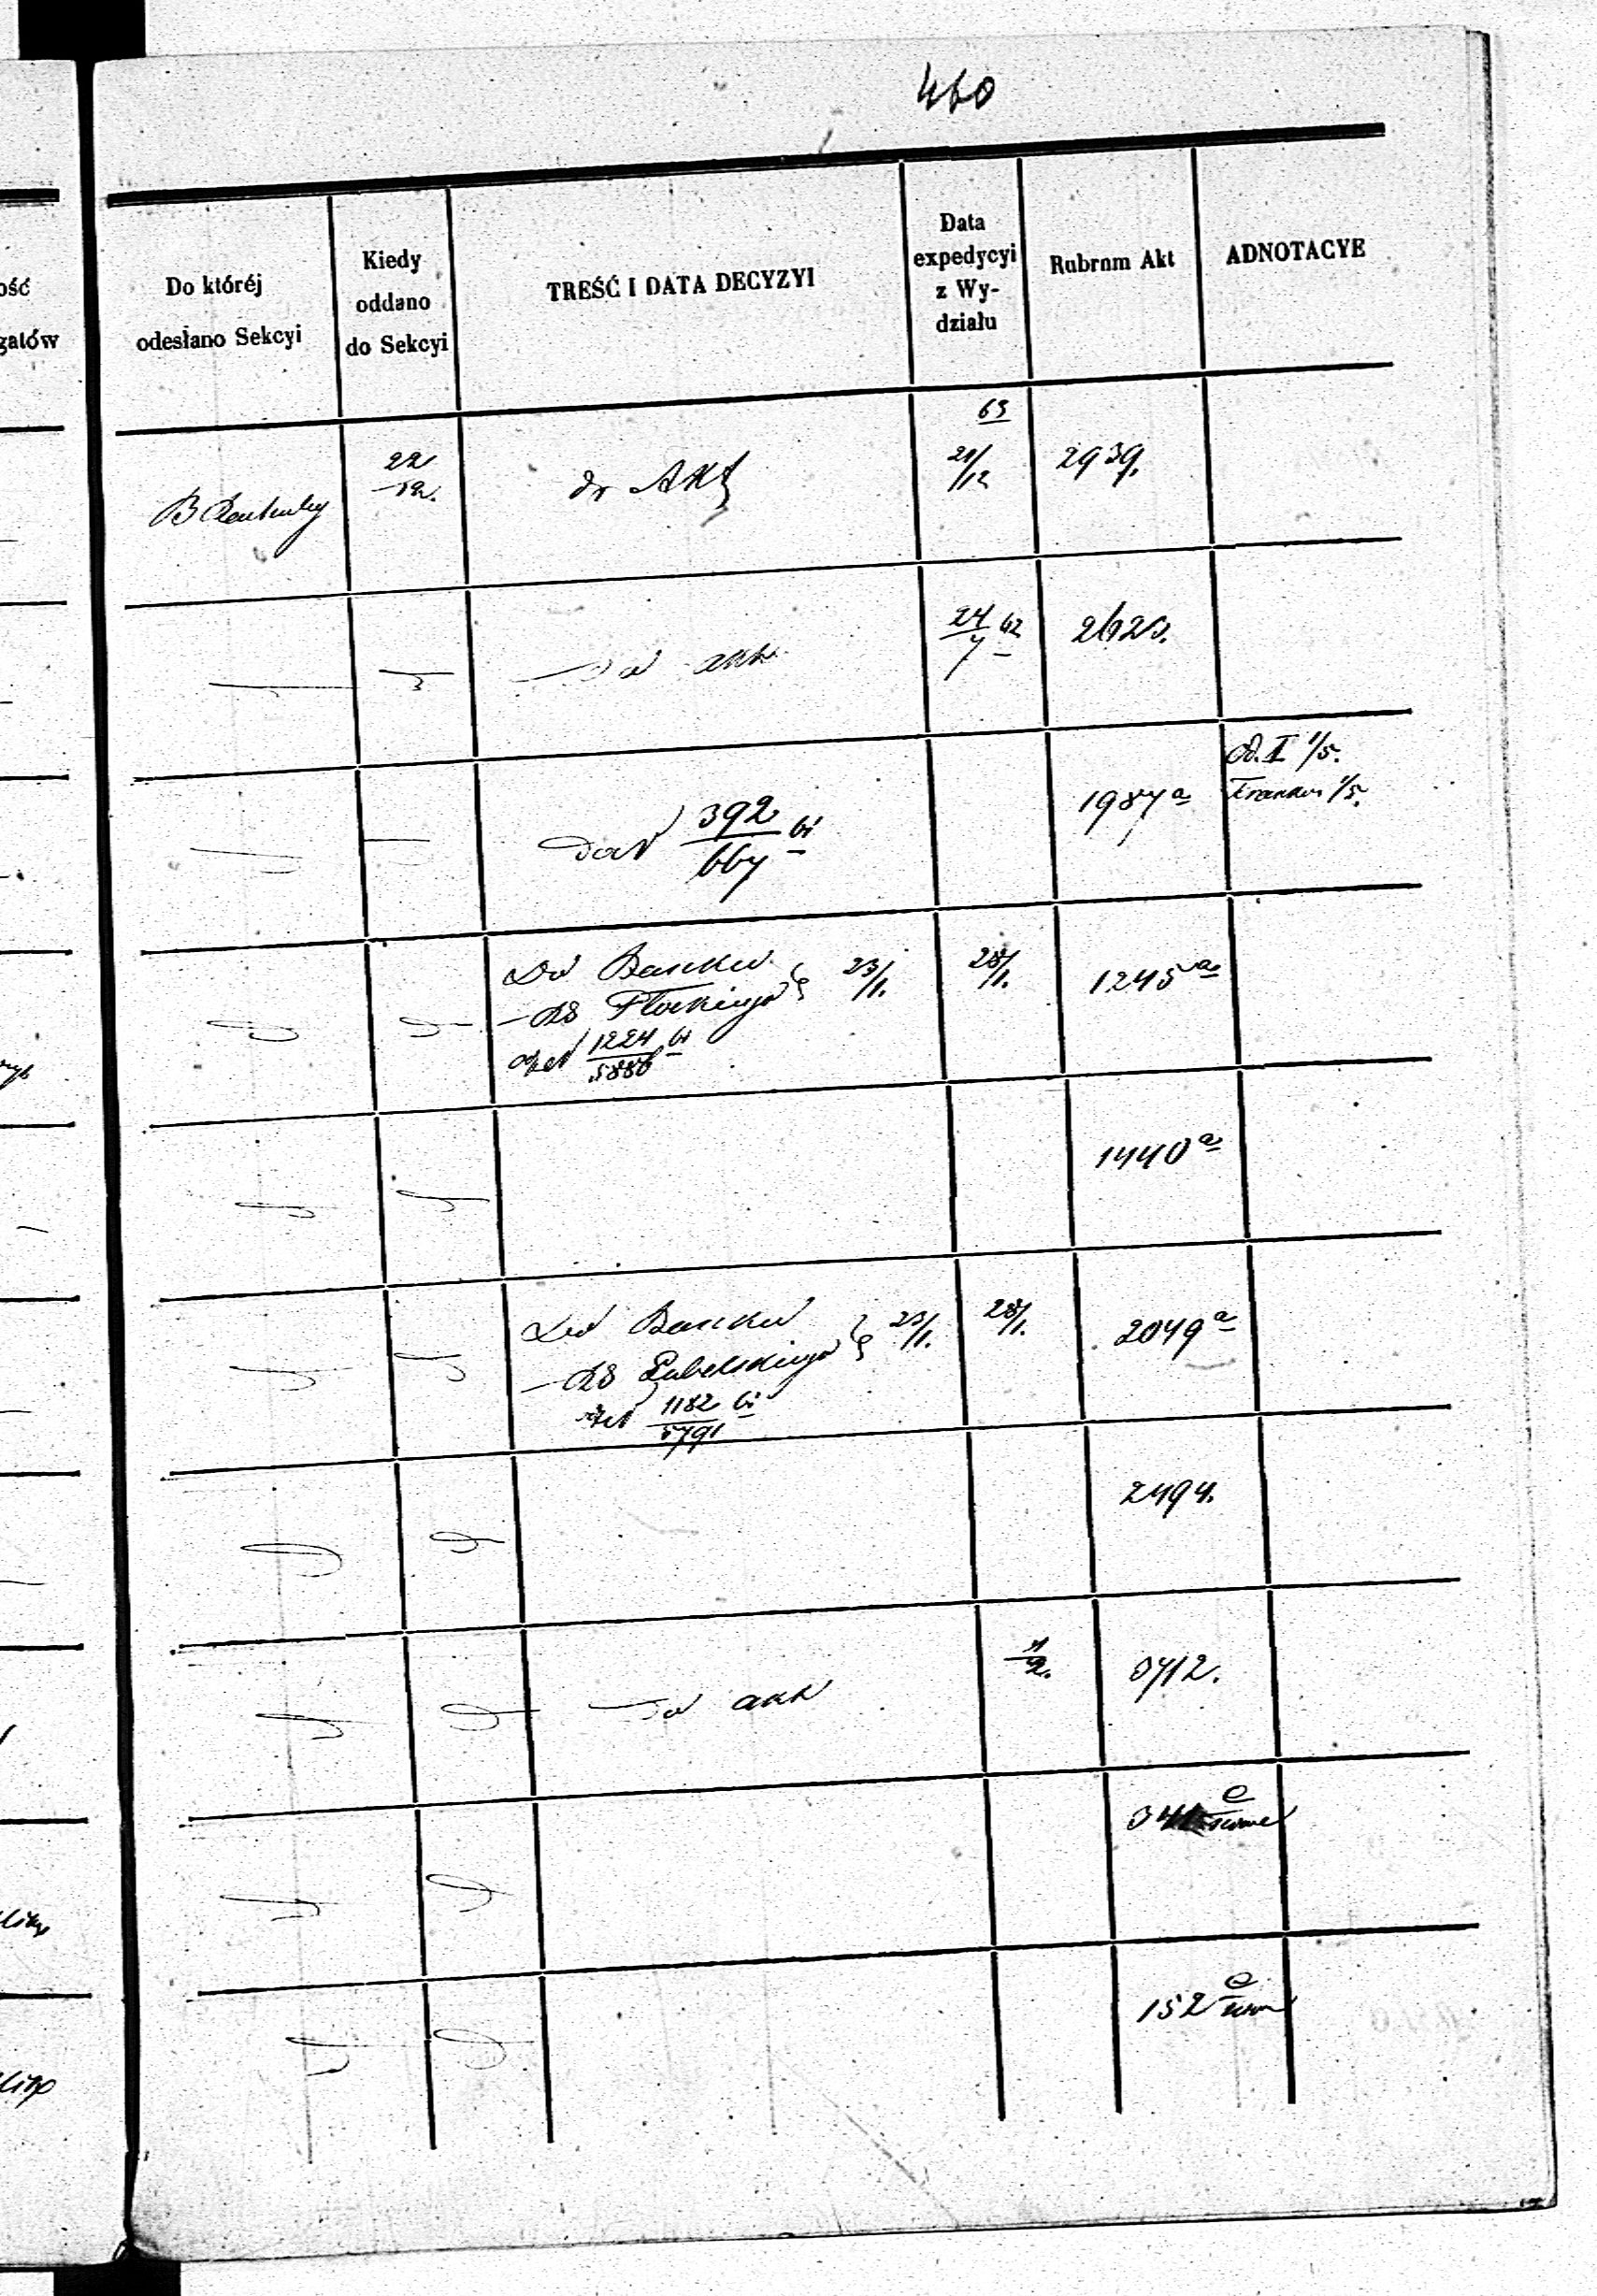 460
ość
gatów
Do któréj
odesłano Sekcyi
Kiedy
oddano
do Sekcyi
TREŚĆ I DATA DECYZYI
Data
expedycyi
z Wy-
działu
Rubrum Akt
ADNOTACYE
22/12.
do Akt
63
21/12
2939.
do akt
24/7 62
2620.
392/667 61
1987 a
Od. I 1/5.
1/5.
Do Banku
DS Płockiego } 23/1.
1224/5886 61
28/1.
1245 a
1440 a
Do Banku
DS Lubelskiego } 23/1.
1182/5791 61
28/1.
2049 a
2494.
do akt
3712.
341 e
152 e